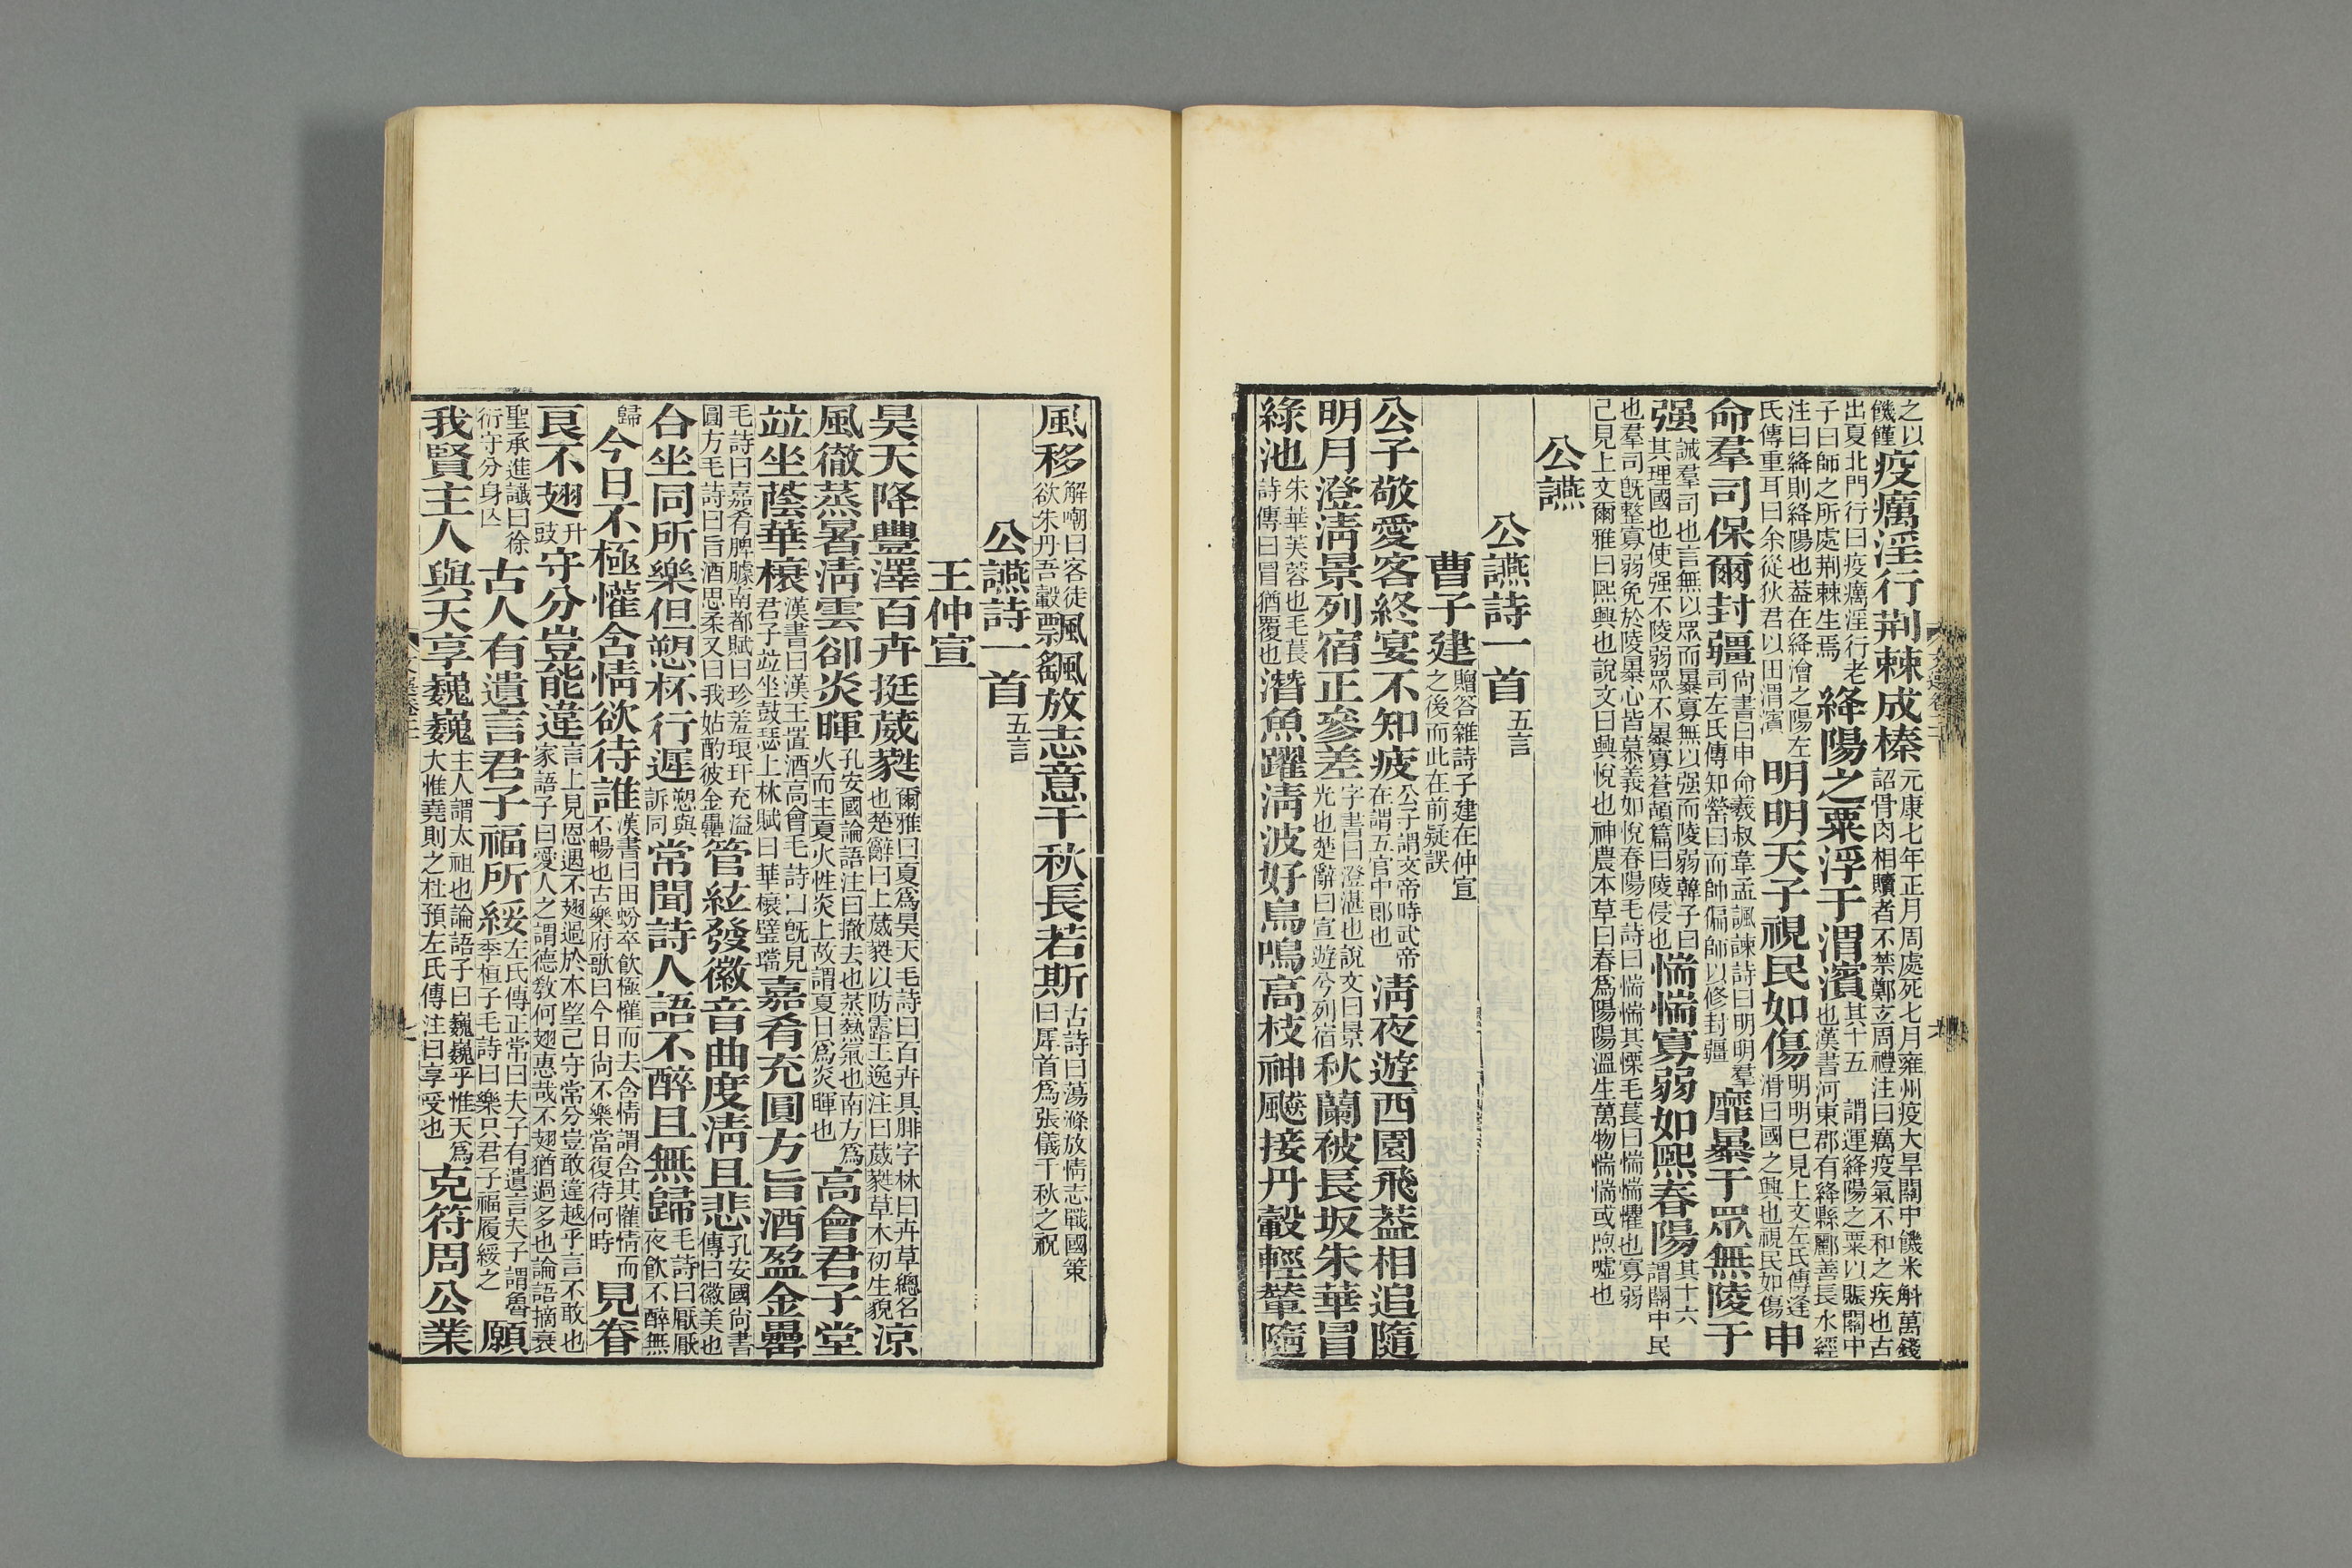 之以
饑饉疫癘淫行荆棘成榛元康七年正月周處死七月雍州疫大旱關中饑米斛萬錢
詔骨肉相贖者不禁鄭玄周禮注曰癘疫氣不和之疾也古
出夏北門行曰疫癘淫行老
子曰師之所處荆棘生焉絳陽之粟浮于渭濱其十五 謂運絳陽之粟以賑關中
也漢書河東郡有絳縣酈善長水經
注曰絳則絳陽也葢在絳澮之陽左
氏傳重耳曰余從狄君以田渭濱明明天子視民如傷明明巳見上文左氏傳逢
滑曰國之興也視民如傷申
命羣司保爾封疆尚書曰申命羲叔韋孟諷諫詩曰明明羣
司左氏傳知罃曰而帥偏師以修封疆靡暴于眾無陵于
强誡羣司也言無以眾而暴寡無以强而陵弱韓子曰
其理國也使强不陵弱眾不暴寡蒼頡篇曰陵侵也惴惴寡弱如熙春陽其十六
謂關中民
也羣司旣整寡弱免於陵暴心皆慕義如悅春陽毛詩曰惴惴其慄毛萇曰惴惴懼也寡弱
己見上文爾雅曰熙興也說文曰興悅也神農本草曰春爲陽陽溫生萬物惴惴或煦噓也
公讌
公讌詩一首五言
曹子建贈答雜詩子建在仲宣
之後而此在前疑誤
公子敬愛客終宴不知疲公子謂文帝時武帝
在謂五官中郎也淸夜遊西園飛葢相追隨
明月澄淸景列宿正參差字書曰澄湛也說文曰景
光也楚辭曰宣遊兮列宿秋蘭被長坂朱華冒
綠池朱華芙蓉也毛萇
詩傳曰冒猶覆也潛魚躍淸波好鳥鳴高枝神飈接丹轂輕輦隨
風移解嘲曰客徒
欲朱丹吾轂飄颻放志意千秋長若斯古詩曰蕩滌放情志戰國策
曰犀首爲張儀千秋之祝
公讌詩一首五言
王仲宣
昊天降豐澤百卉挺葳蕤爾雅曰夏爲昊天毛詩曰百卉具腓字林曰卉草總名
也楚辭曰上葳蕤以防露王逸注曰葳蕤草木初生貌涼
風徹蒸暑淸雲卻炎暉孔安國論語注曰撤去也蒸熱氣也南方爲
火而主夏火性炎上故謂夏日爲炎暉也高會君子堂
竝坐蔭華榱漢書曰漢王置酒高會毛 詩曰旣見
君子竝坐鼓瑟上林賦曰 華榱璧璫嘉肴充圓方旨酒盈金罍
毛詩曰嘉肴脾臄南都賦曰珍羞琅玕充溢
圓方毛詩曰旨酒思柔又曰我姑酌彼金罍管絃發徽音曲度淸且悲孔安國尙書
傳曰徽美也
合坐同所樂但愬杯行遲愬與
訴同常聞詩人語不醉且無歸毛詩曰厭厭
夜飮不醉無
歸今日不極懽含情欲待誰漢書曰田蚡卒飮極懽而去含情謂含其懽情而
不暢也古樂府歌曰今日尙不樂當復待何時見眷
良不翅升
豉守分豈能違言上見恩遇不翅過於本望己守常分豈敢違越乎言不敢也
家語子曰愛人之謂德敎何翅惠哉不翅猶過多也論語摘衰
聖承進讖曰徐
衍守分身亾古人有遺言君子福所綏左氏傳正常曰夫子有遺言夫子謂魯
季桓子毛詩曰樂只君子福履綏之願
我賢主人與天享巍巍主人謂太祖也論語子曰巍巍乎惟天爲
大惟堯則之杜預左氏傳注曰享受也克符周公業